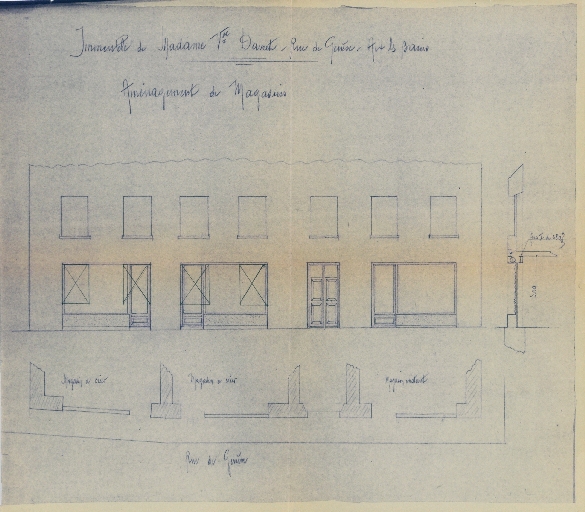 Immeuble de Madame Vve Danet - Rue de Genève - Aix les Bains
Aménagement de Magasins
3.00
Magasin à créer
Magasin à créer
Magasin existant
Rue de Genève